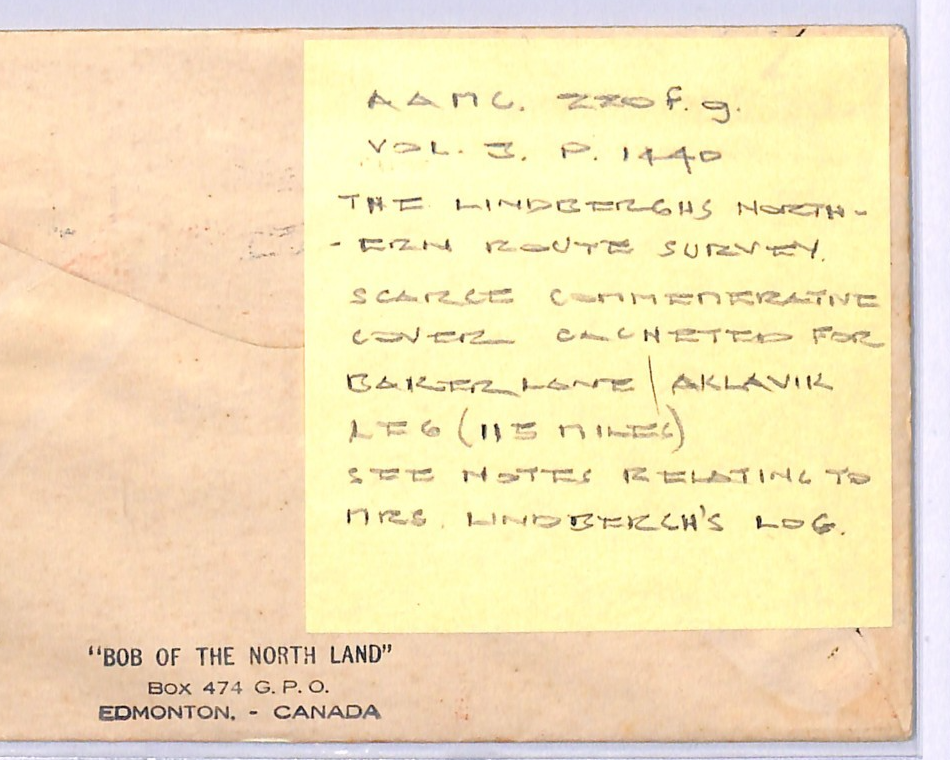 AAMC. 220 f. g.
VOL. 3. P. 1440
THE LINDBERGHS NORTH-
-ERN ROUTE SURVEY.
SCARCE COMMEMERATIVE
COVER CACHETED FOR
BAKER LANE / AKLAVIK
LEG (115 MILES)
SEE NOTES RELATING TO
MRS. LINDBERGH'S LOG.
"BOB OF THE NORTH LAND"
BOX 474 G. P. O.
EDMONTON, - CANADA